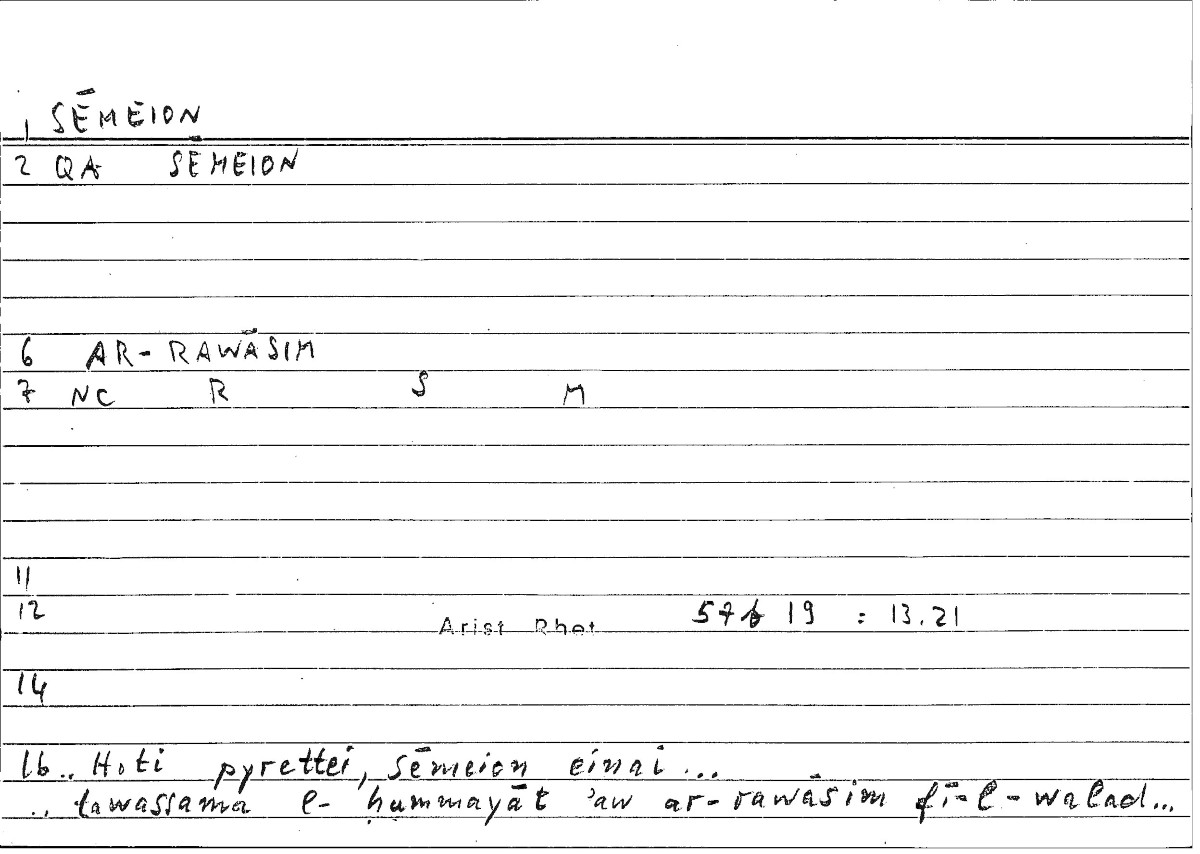 1 SĒMEION
2 QA SĒMEION
6 AR-RAWĀSIM
7 NC R S M
11
12 Arist Rhet 57b 19 : 13.21
14
16.. Hoti pyrettei, sēmeion einai...
.. tawassama l- ḥummayāt 'aw ar-rawāsim fī-l-walad...